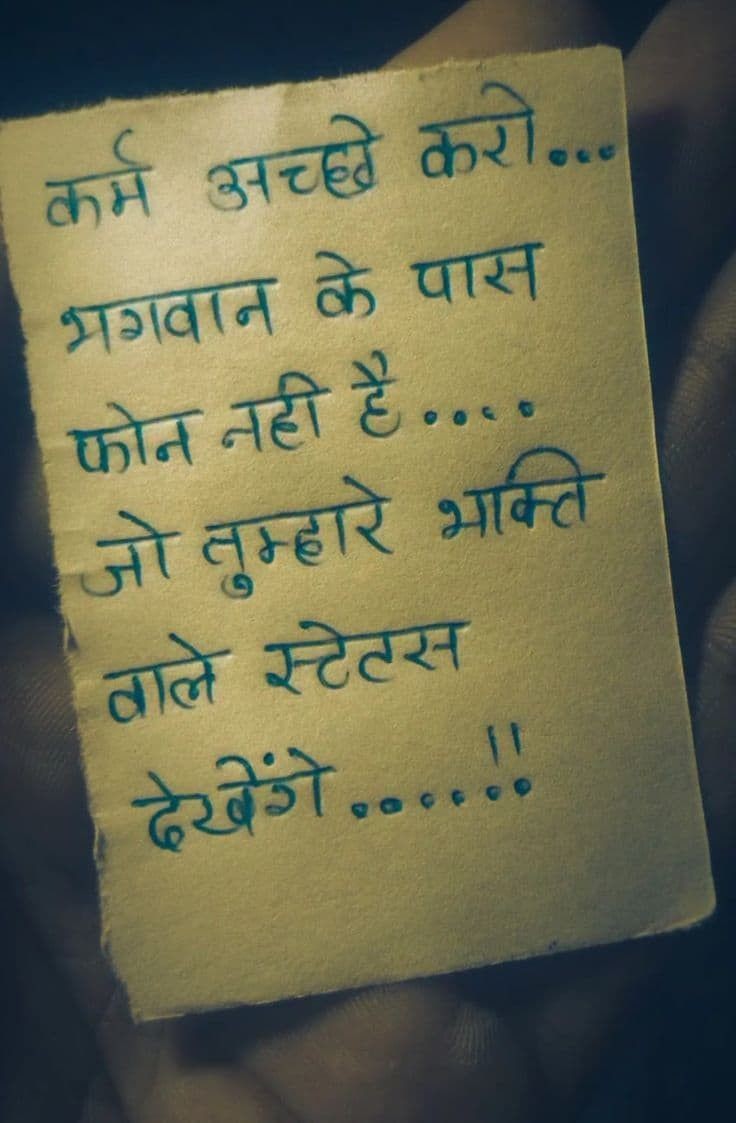 कर्म अच्छे करो...
भगवान के पास
फोन नही है....
जो तुम्हारे भक्ति
वाले स्टेटस
देखेंगे......!!